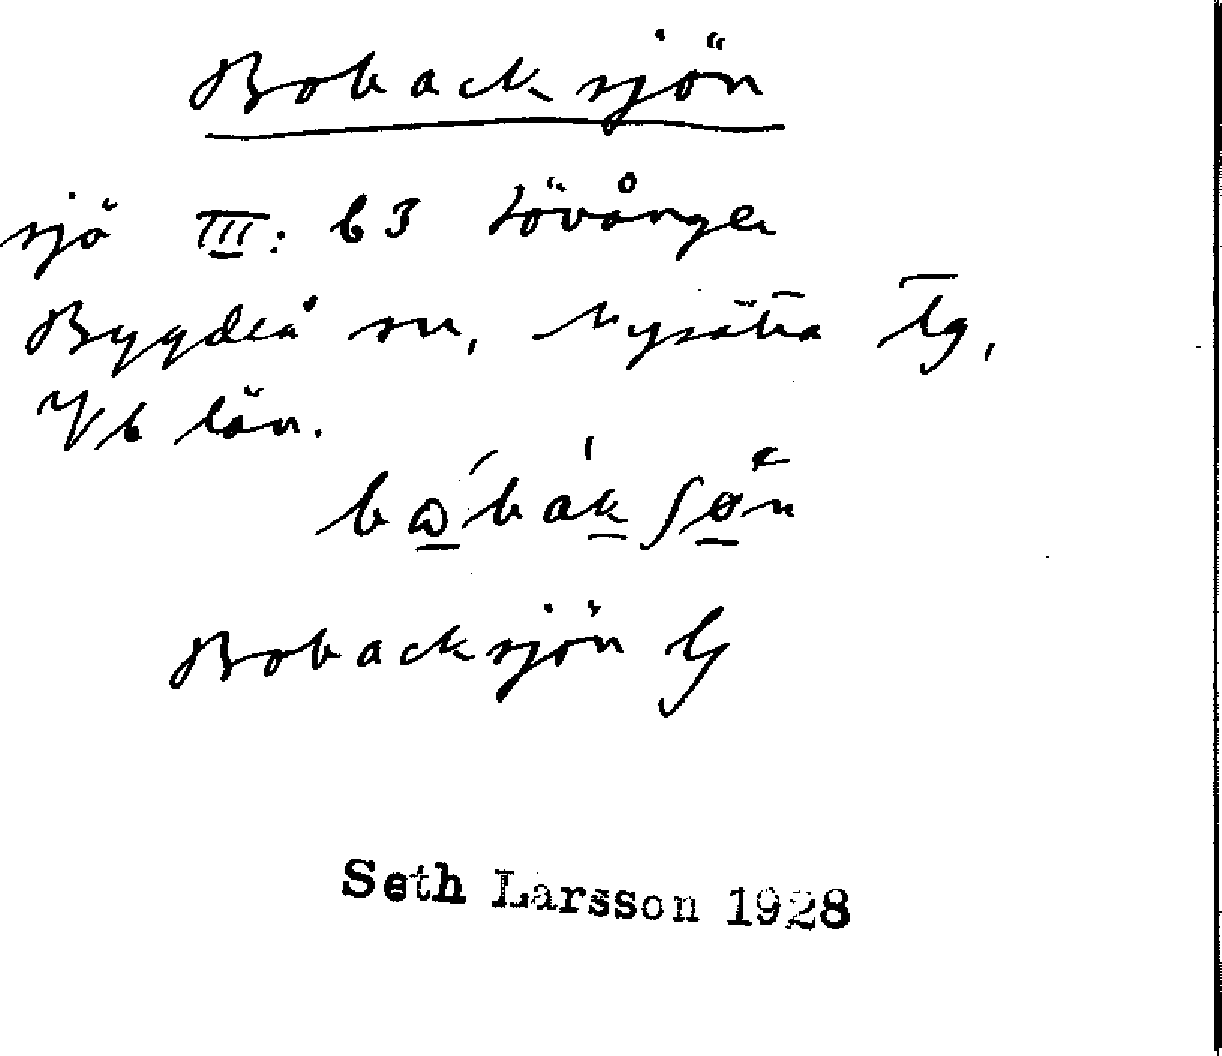 Bobacksjön
sjö III: b 3 Lövånger
Bygdeå sn, Nysätra tg,
Vb län.
Bobacksjön G
Seth Larsson 1928